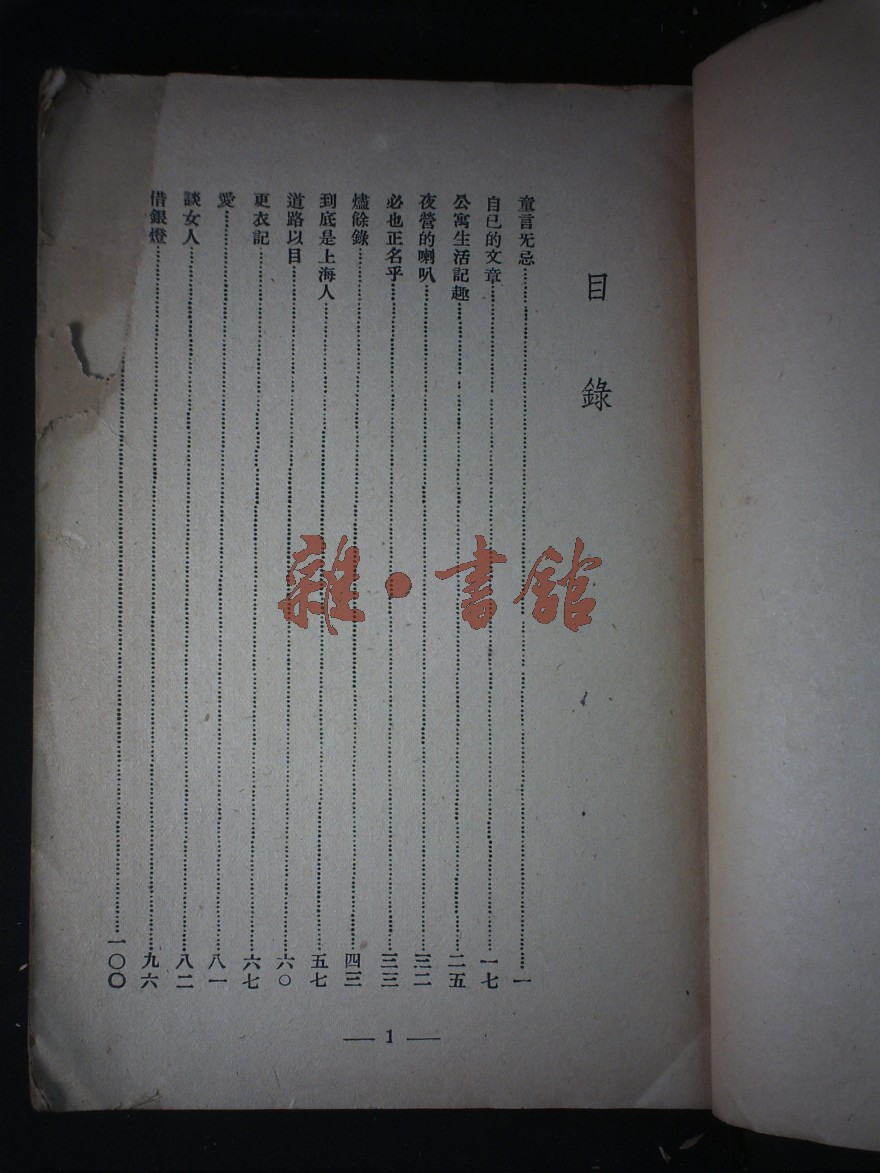 目錄
童言无忌……一
自己的文章……一七
公寓生活記趣……二五
夜營的喇叭……三二
必也正名乎……三三
燼餘錄……四三
到底是上海人……五七
道路以目……六〇
更衣記……六七
愛……八一
談女人……八二
借銀燈……九六
……一〇〇
— 1 —
雜·書館